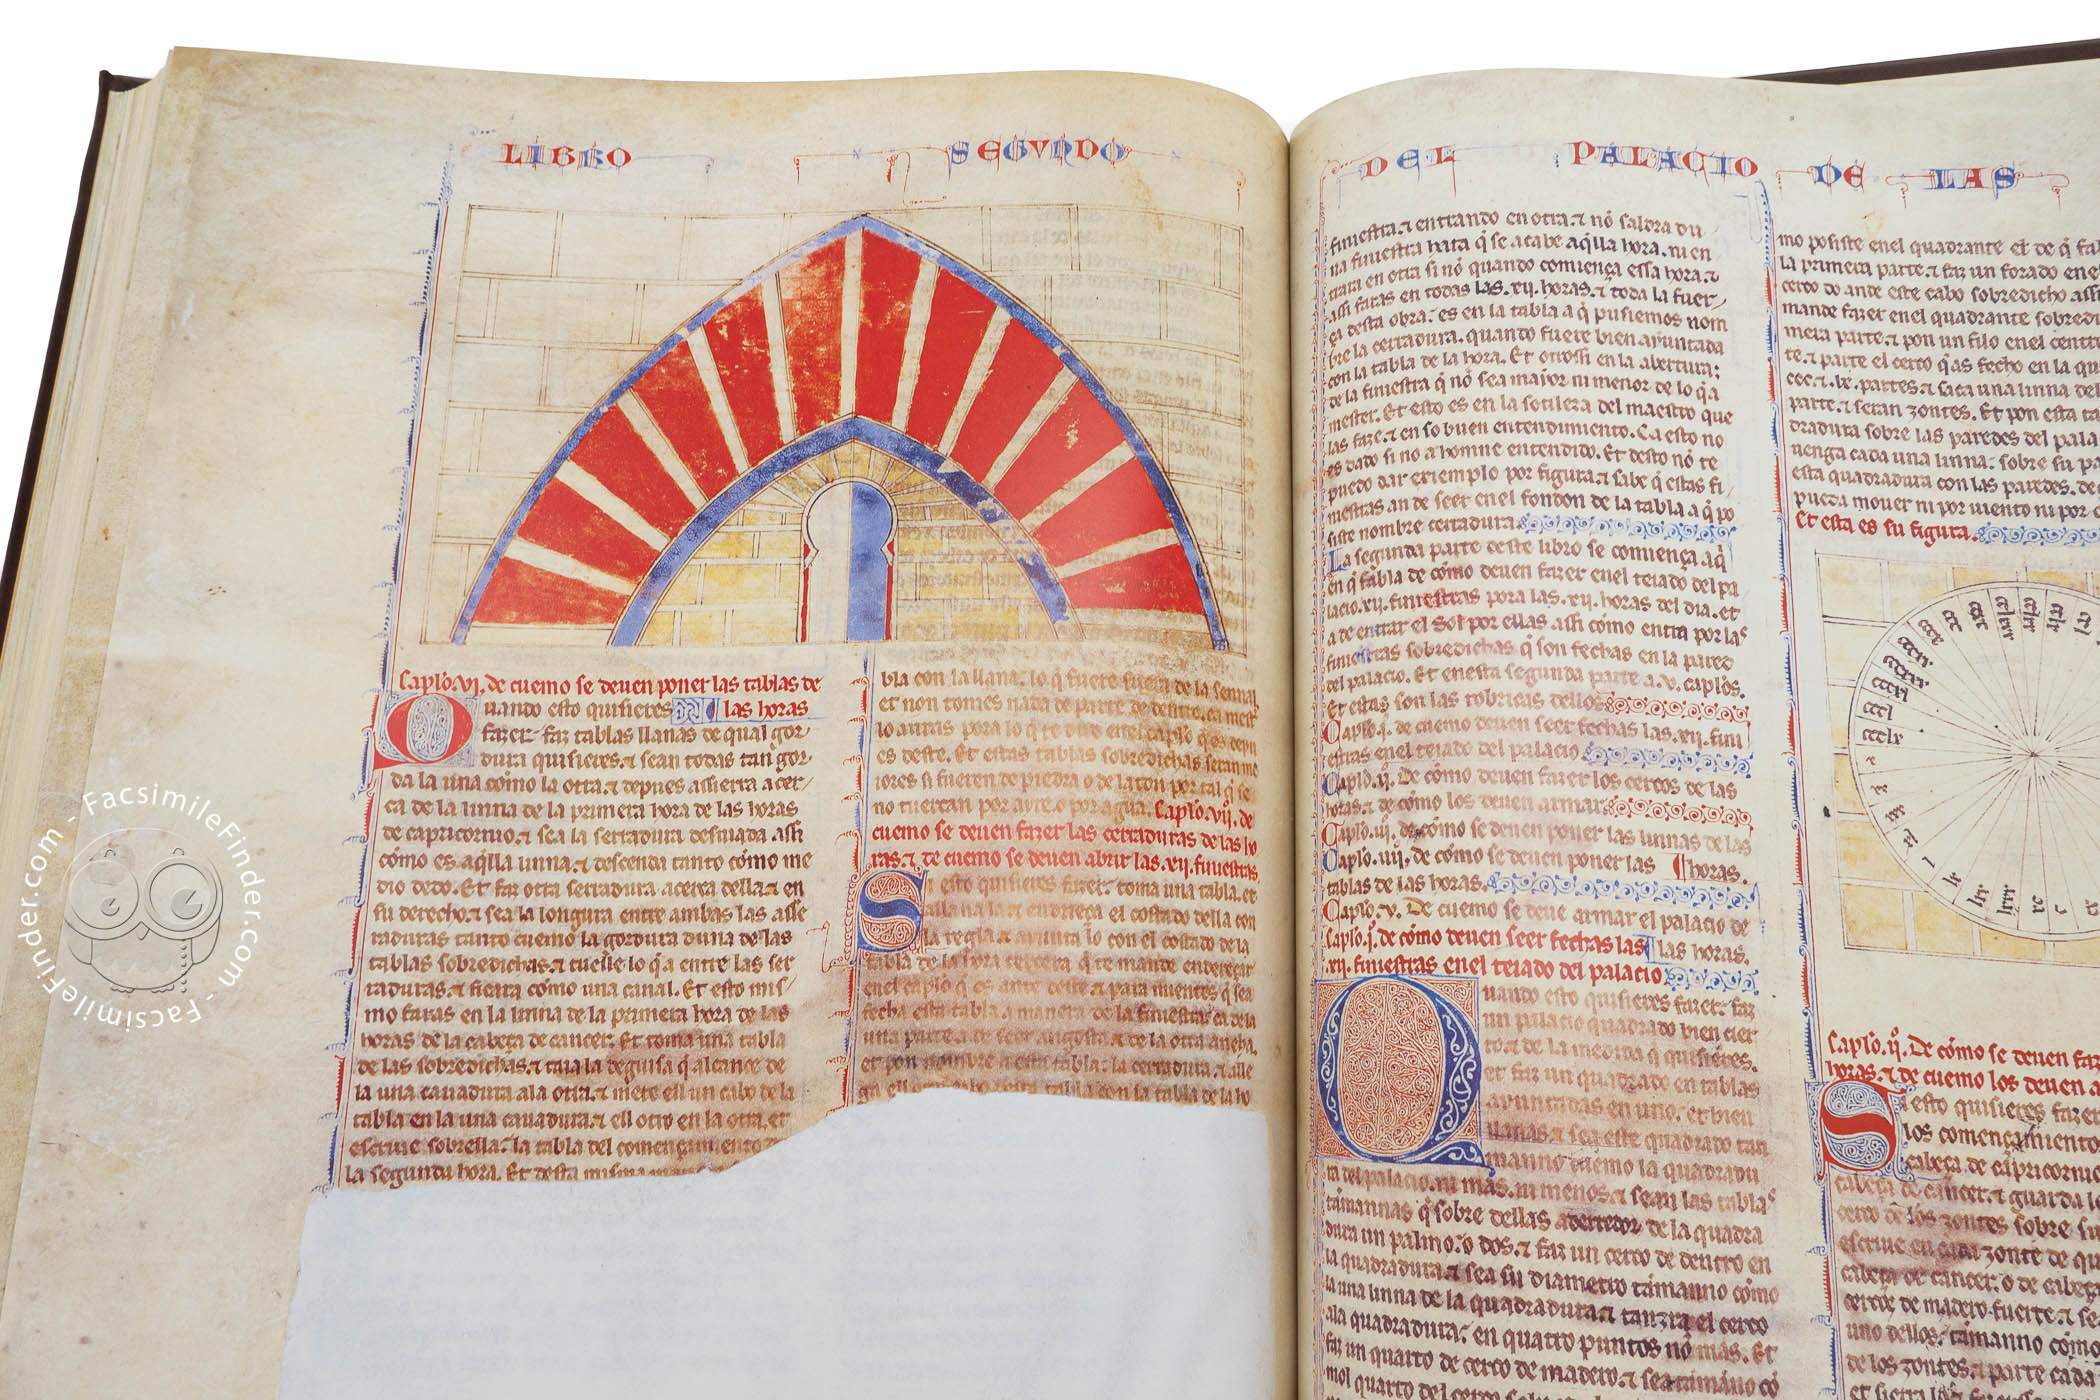 LIBRO SEGVNDO
Caplo. vi. de cuemo se deuen poner las tablas de
las horas
Quando esto quisieres
fazer. faz tablas llanas de qual gor
dura quisieres. & sean todas tan gor
da la una cómo la otra & depues assierra acer
ca de la linna de la primera hora de las horas
de capricornio. & sea la serradura desuiada assi
cómo es aqlla linna. & descenda tanto cómo me
dio dedo. Et faz otra serradura acerca della. & en
su derecho. & sea la longura entre ambas las asse
rraduras tanto cuemo la gordura duna de las
tablas sobredichas. & tuelle lo q a entre las ser
raduras. & fierra cómo una canal. Et esto mis
mo faras en la linna de la primera hora de las
horas de la cabeça de cancer. Et toma una tabla
de las sobredichas. & taia la deguisa q alcance de
la una cauadura ala otra. & mete ell un cabo de la
tabla en la una cauadura. & ell otro en la otra. et
escriue sobrella. la tabla del començamiento de
la segunda hora. Et desta misma
bla con la llana. lo q fuere fuera de la sennal
et non tomes nada de parte de dentro. ca mest
lo auras pora lo q te dire en el caplo q es depu
es deste. Et estas tablas sobredichas seran me
iores si fueren de piedra o de laton por tal q se
no tuerçan por ayre. o por agua. Caplo. vii. de
cuemo se deuen fazer las cerraduras de las ho
ras. & de cuemo se deuen abrir las. xii. finiestras.
Si esto quisieres fazer. toma una tabla. et
allana la & endreça el costado della con
la regla & aiunta lo con el costado de la
tabla de la hora tercera q te mande endereçar
en el caplo q es ante deste & para mientes q sea
fecha esta tabla a manera de la finiestra. ca de la
una parte a de seer angosta & de la otra ancha.
et pon nombre a esta tabla. la cerradura. & alle
tabla con la tabla de la ho
DEL PALACIO DE LAS
finiestra. & entrando en otra. & nó saldra du
na finiestra hata q se acabe aqlla hora. ni en
trara en otra si nó quando comiença essa hora. &
assi faras en todas las. xii. horas. & toda la fuer
ça desta obra. es en la tabla a q pusiemos nom
bre la cerradura. quando fuere bien aiuntada
con la tabla de la hora. Et otrossi en la abertura
de la finiestra q nó sea maior ni menor de lo q a
mester. Et esto es en la sotileza del maestro que
las faze. & en so buen entendimiento. Ca esto no
es dado si no a homne entendido. Et desto nó te
puedo dar exiemplo por figura. & sabe q estas fi
niestras an de seer en el fondon de la tabla a q po
siste nombre cerradura.
La segunda parte deste libro se comiença aq
en q fabla de cómo deuen fazer en el teiado del pa
lacio. xii. finiestras pora las. xii. horas del dia. et
a de entrar el Sol por ellas. assi cómo entra por las
finiestras sobredichas q son fechas en la pared
del palacio. Et en esta segunda parte a. v. caplos.
Et estas son las robricas dellos
Caplo. i. de cuemo deuen seer fechas las. xii. fini
estras en el teiado del palacio
Caplo. ii. De cómo deuen fazer los cercos de las
horas. & de cómo los deuen armar.
Caplo. iii. de cómo se deuen poner las linnas de las
horas.
Caplo. iiii. de cómo se deuen poner las
tablas de las horas.
Caplo. v. De cuemo se deue armar el palacio de
las horas.
Caplo. i. de cómo deuen seer fechas las
xii. finiestras en el teiado del palacio
Quando esto quisieres fazer. faz
un palacio quadrado bien cier
to. & de la medida q quisieres.
et faz un quadrado en tablas
aiuntadas en uno. et bien
llanas. & sea este quadrado tan
manno cuemo la quadradu
ra del palacio. ni mas. ni menos. & sean las tablas
tamannas q sobre dellas aderredor de la quadra
dura un palmo. o dos. & faz un cerco de dentro en
la quadradura. & sea su diametro tamanno cómo
la una linna de la quadradura. & tanzra el cerco
ala quadradura. en quatro puntos nó mas. Et
faz un quarto de cerco de madero. & sea tamanno có
mol quarto del cerco sobre
mo posiste enel quadrante et de q fa
la primera parte. & faz un forado ene
cerco do ante este cabo sobredicho assi
mande fazer enel quadrante sobredi
mera parte. & pon un filo enel centr
te. & parte el cerco q as fecho en la qu
ccc. & lx. partes. & saca una linna del
parte. & seran zontes. Et pon esta ta
dradura sobre las paredes del pala
uenga cada una linna. sobre su pa
esta quadradura con las paredes. de
pueda mouer ni por uiento ni por
Et esta es su figura.
Caplo. ii. De cómo se deuen faz
horas. & de cuemo los deuen a
Si esto quisieres fazer
los començamiento
cabeça de capricornio
cabeça de cancer. & guarda lo
cerco de los zontes sobre su
escriue en cada zonte de qu
cabeça de cancer. o de cabeça
cerco de madero fuerte. & se
uno dellos. tamanno cómo
de los zontes. & parte cada
FacsimileFinder.com - FacsimileFinder.com - FacsimileFinder.com